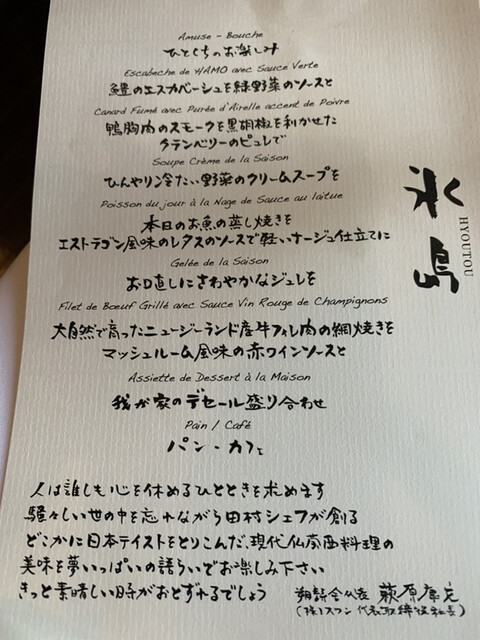 Amuse - Bouche
ひとくちのお楽しみ
Escabeche de HAMO avec Sauce Verte
鱧のエスカベーシュを緑野菜のソースと
Canard Fumé avec Purée d'Airelle accent de Poivre
鴨胸肉のスモークを黒胡椒を利かせた
クランベリーのピュレで
Soupe Crème de la Saison
ひんやリン冷たい野菜のクリームスープを
Poisson du jour à la Nage de Sauce au laitue
本日のお魚の蒸し焼きを
エストラゴン風味のレタスのソースで軽いナージュ仕立てに
Gelée de la Saison
お口直しにさわやかなジュレを
Filet de Boeuf Grillé avec Sauce Vin Rouge de Champignons
大自然で育ったニュージーランド産牛フィレ肉の網焼きを
マッシュルーム風味の赤ワインソースと
Assiette de Dessert à la Maison
我が家のデセール盛り合わせ
Pain / Café
パン・カフェ
氷島
HYOUTOU
人は誰しも心を休めるひとときを求めます
騒々しい世の中を忘れながら田村シェフが創る
どこかに日本テイストをとりこんだ、現代仏蘭西料理の
美味を夢いっぱいの語らいでお楽しみ下さい
きっと素晴しい時がおとずれるでしょう
萩原
(株)スワン 代表取締役社長)